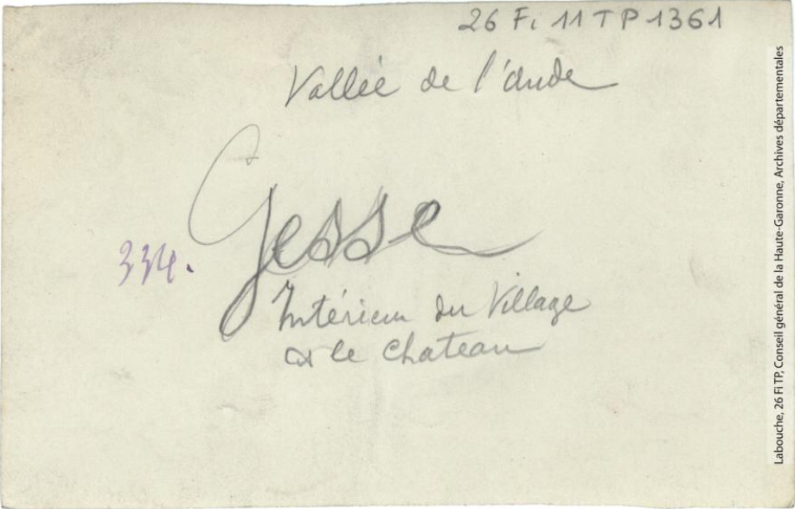 26 Fi 11 TP 1361
Vallée de l'Aude
Gesse
334.
Intérieur du Village
& le Chateau
Labouche, 26 Fi TP, Conseil général de la Haute-Garonne, Archives départementales